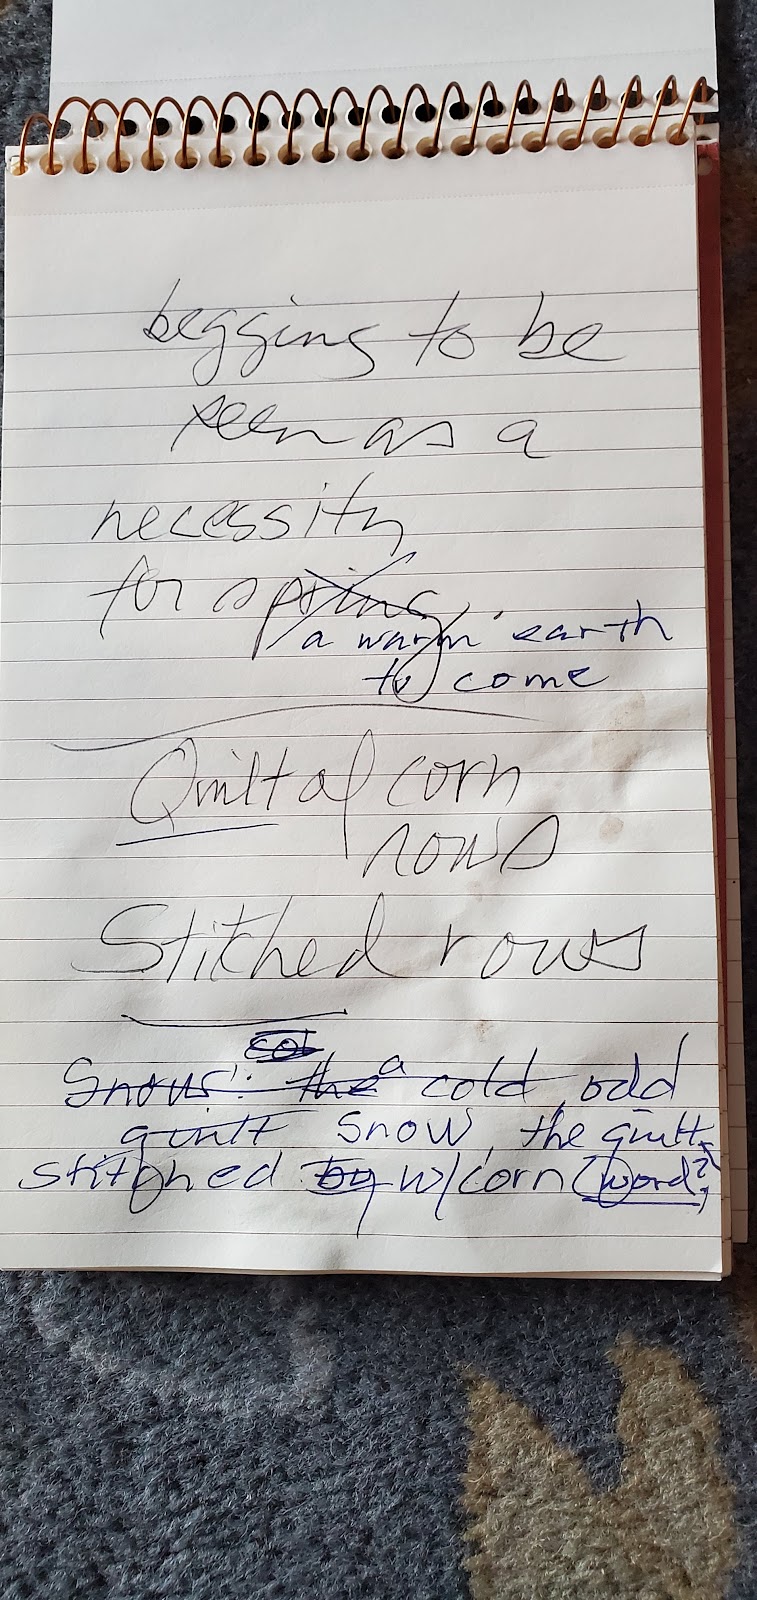 begging to be
seen as a
necessity
for spring
a warm earth
to come
Quilt of corn
rows
Stitched rows
col
Snow: the a cold odd
quilt snow, the quilt
stitched by w/corn (word?)